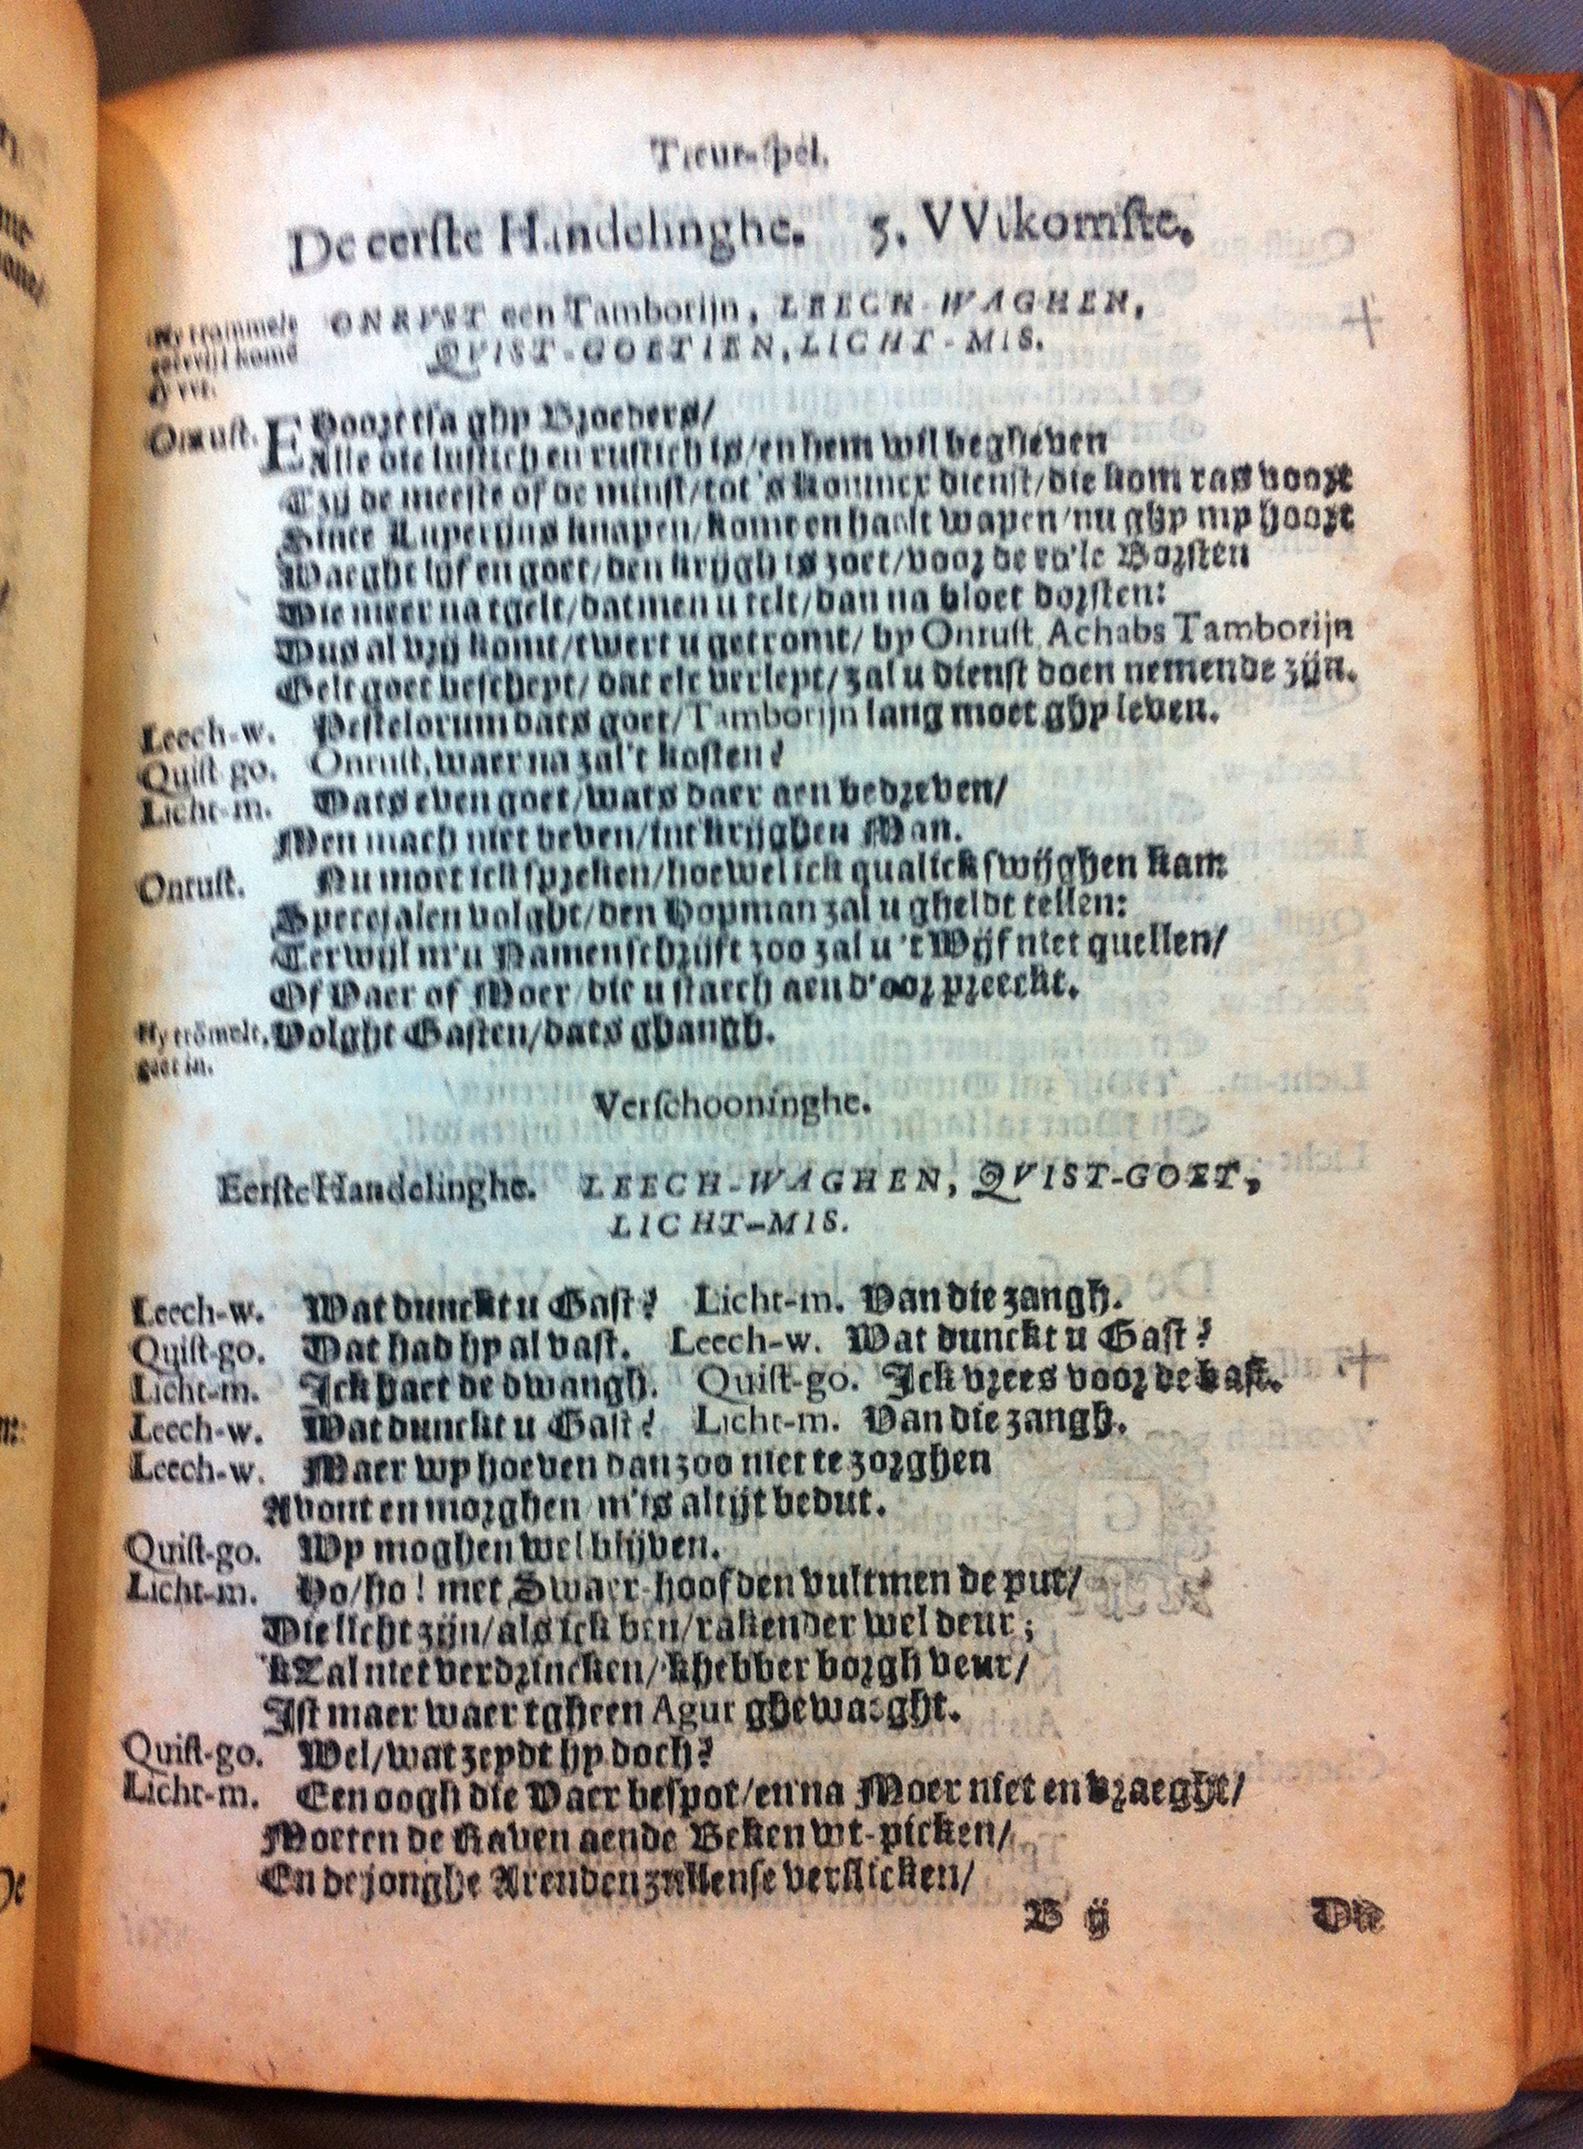 Treur-spel.
De eerste Handelinghe. 5. VVtkomste.
Hy trommelt
ONRVST een Tamborijn, LEECH-WAGHEN,
terwijl komd
QVIST-GOETIEN, LICHT-MIS.
zy vvt.
Onrust. EHoort tsa ghy Broeders/
Alle die lustich en rustich is/en hem wil begheven
Tzy de meeste of de minst/tot 's konincx dienst/die kom ras voort
Since Lupertijns knapen/komt en haelt wapen/nu ghy my hoort
Waeght lijf en goet/den krijgh is zoet/voor de vo'le Borsten
Die meer na tgelt/datmen u telt/dan na bloet dorsten:
Dus al vry komt/twert u getromt/ by Onrust Achabs Tamborijn
Gelt goet beschept/ dat elc verlept/zal u dienst doen nemende zijn.
Leech-w. Pestelorum dats goet/Tamborijn lang moet ghy leven.
Quist go. Onrust, waer na zal't kosten?
Licht-m. Dats even goet/wats daer aen bedreven/
Men mach niet beven/int krijghen Man.
Onrust. Nu moet ick spreken/hoewel ick qualick swijghen kan:
Specejalen volght/den Hopman zal u gheldt tellen:
Terwijl m'u Namen schrijft zoo zal u 't Wijf niet quellen/
Of Vaer of Moer/die u staech aen d'oor preeckt.
Hy trõmelt, Volght Gasten/dats ghangh.
gaet in.
Verschooninghe.
Eerste Handelinghe. LEECH-WAGHEN, QVIST-GOET,
LICHT-MIS.
Leech-w. Wat dunckt u Gast? Licht-m. Van die zangh.
Quist-go. Dat had hy al vast. Leech-w. Wat dunckt u Gast?
Licht-m. Ick haet de dwangh. Quist-go. Ick vrees voor de bast.
Leech-w. Wat dunckt u Gast? Licht-m. Van die zangh.
Leech-w. Maer wy hoeven dan zoo niet te zorghen
Avont en morghen/m'is altijt bedut.
Quist-go. Wy moghen wel blijven.
Licht-m. Ho/ho! met Swaer-hoofden vultmen de put/
Die licht zijn/als ick ben/rakender wel deur;
'kZal niet verdrincken/'khebber borgh veur/
Ist maer waer tgheen Agur ghewaeght.
Quist-go. Wel/wat zeydt hy doch?
Licht-m. Een oogh die Vaer bespot/en na Moer niet en vraeght/
Moeten de Raven aende Beken wt-picken/
En de jonghe Arenden zullense verslicken/
B ij Die